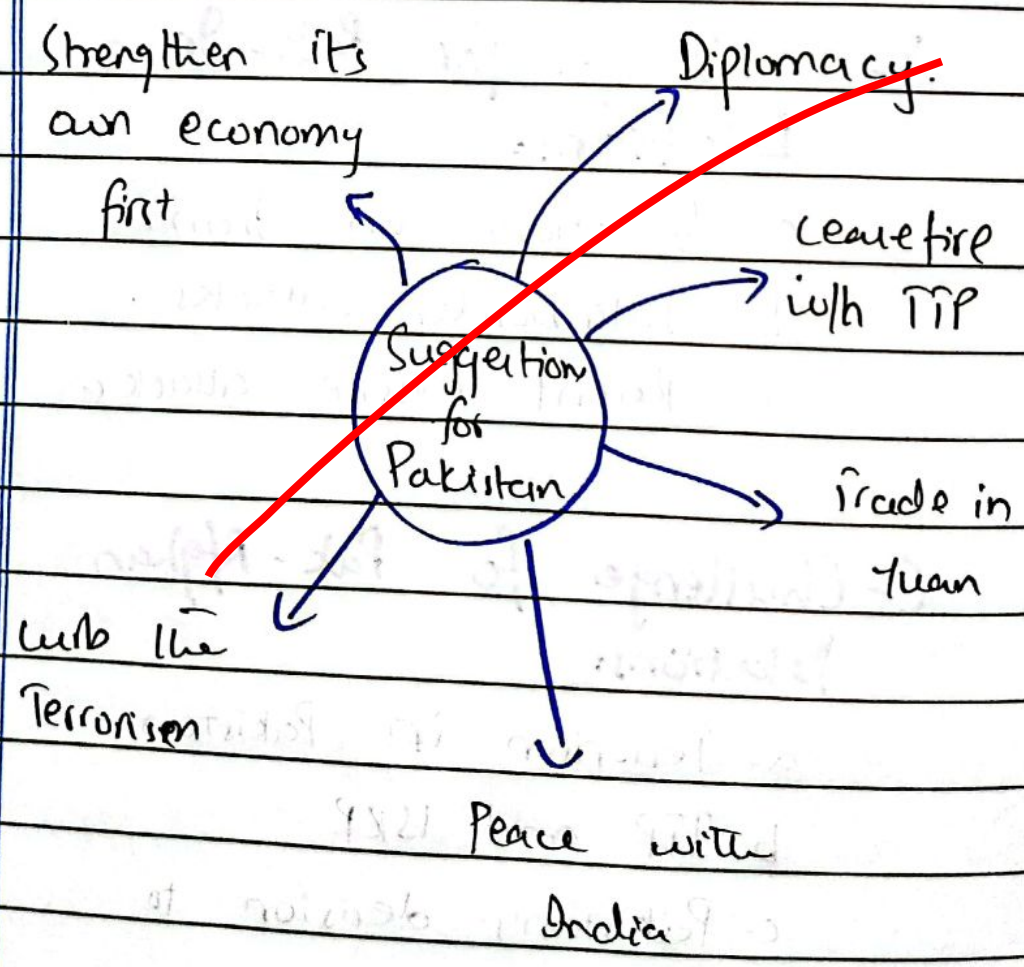 Strengthen its
own economy
first
Diplomacy.
ceasefire
with TTP
Suggestions
for
Pakistan
Trade in
Yuan
curb the
Terrorism
Peace with
India